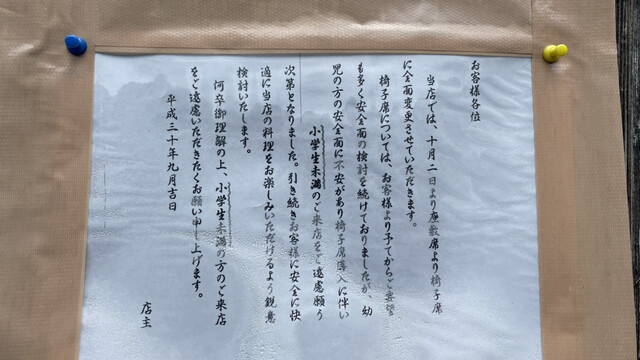 お客様各位
当店では、十月二日より座敷席より椅子席
に全面変更させていただきます。
椅子席については、お客様より予てからご要望
も多く安全面の検討を続けておりましたが、幼
児の方の安全面に不安があり椅子席導入に伴い
小学生未満のご来店をご遠慮願う
次第となりました。引き続きお客様に安全に快
適に当店の料理をお楽しみいただけるよう鋭意
検討いたします。
何卒御理解の上、小学生未満の方のご来店
をご遠慮いただきたくお願い申し上げます。
平成三十年九月吉日
店主